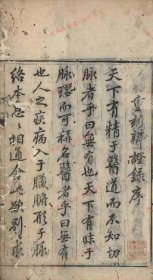 重刻辨證錄序
天下有精于醫道而不知切
脉者乎曰無有也天下有昧于
脉理而可稱名醫者乎曰無有
也人之疾病入于臟腑形于脉
絡本
相通